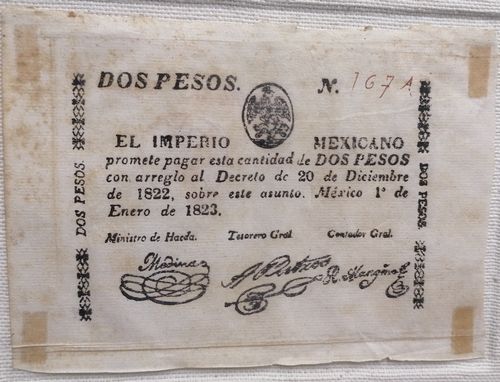 DOS PESOS. N. 167 A
EL IMPERIO MEXICANO
promete pagar esta cantidad de DOS PESOS
con arreglo al Decreto de 20 de Diciembre
de 1822, sobre este asunto. México 1º de
Enero de 1823.
Ministro de Hacda. Tesorero Gral. Contador Gral.
Medina
DOS PESOS.
DOS PESOS.